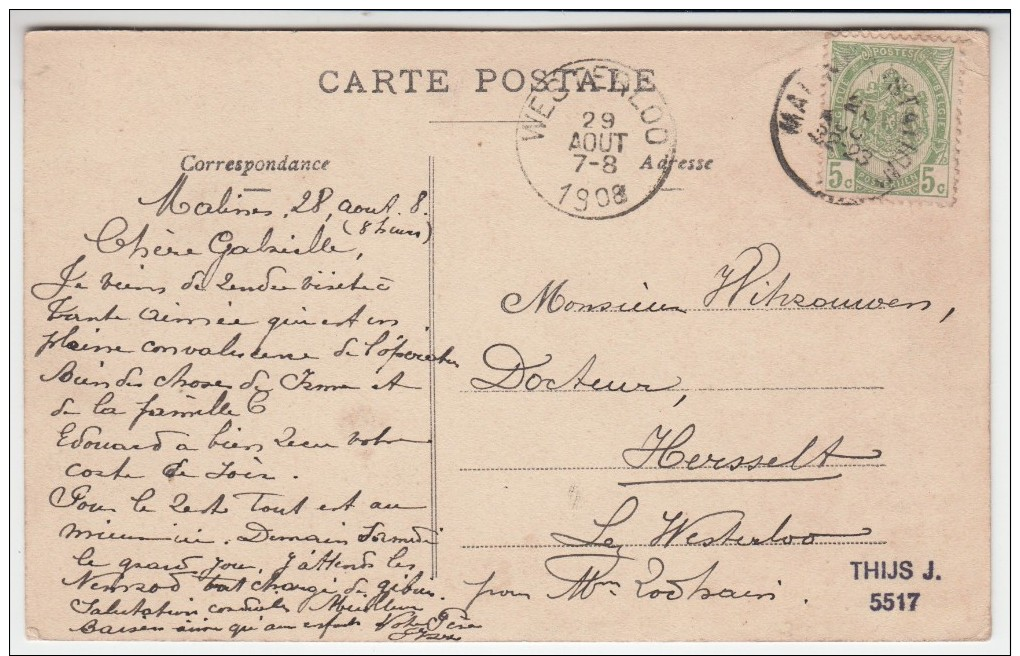 CARTE POSTALE
WESTERLOO
29
AOUT
7-8
1908
POSTES
5c 5c
Correspondance
Adresse
Malines, 28 août 8.
(8 heures)
Chère Gabrielle,
Je viens de rendre visite à
Tante aimée qui est en
pleine convalescence de l'opération
Bien des choses de Irma et
de la famille C
Edouard a bien reçu votre
carte de
Pour le reste tout est au
Demain Samedi
le grand jour. J'attends les
Nemrod tout chargé de gibier.
Salutation cordiales Meilleurs
Baisers ainsi qu'aux enfants Votre Père
Monsieur
Docteur,
Hersselt
Lez Westerloo
pour Mme Rodhain.
THIJS J.
5517